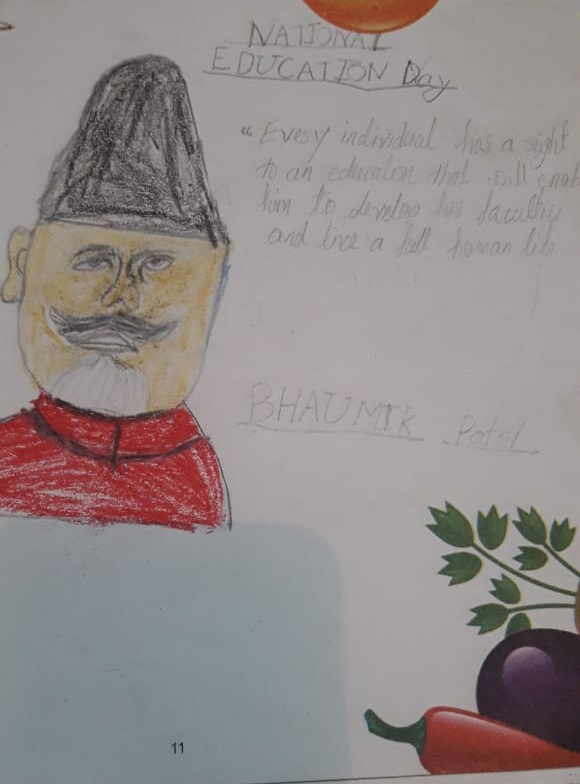 NATIONAL
EDUCATION Day
“Every individual has a right
to an education that will enab
him to develop his faculties
and live a full human life
BHAUMIK Patel
11